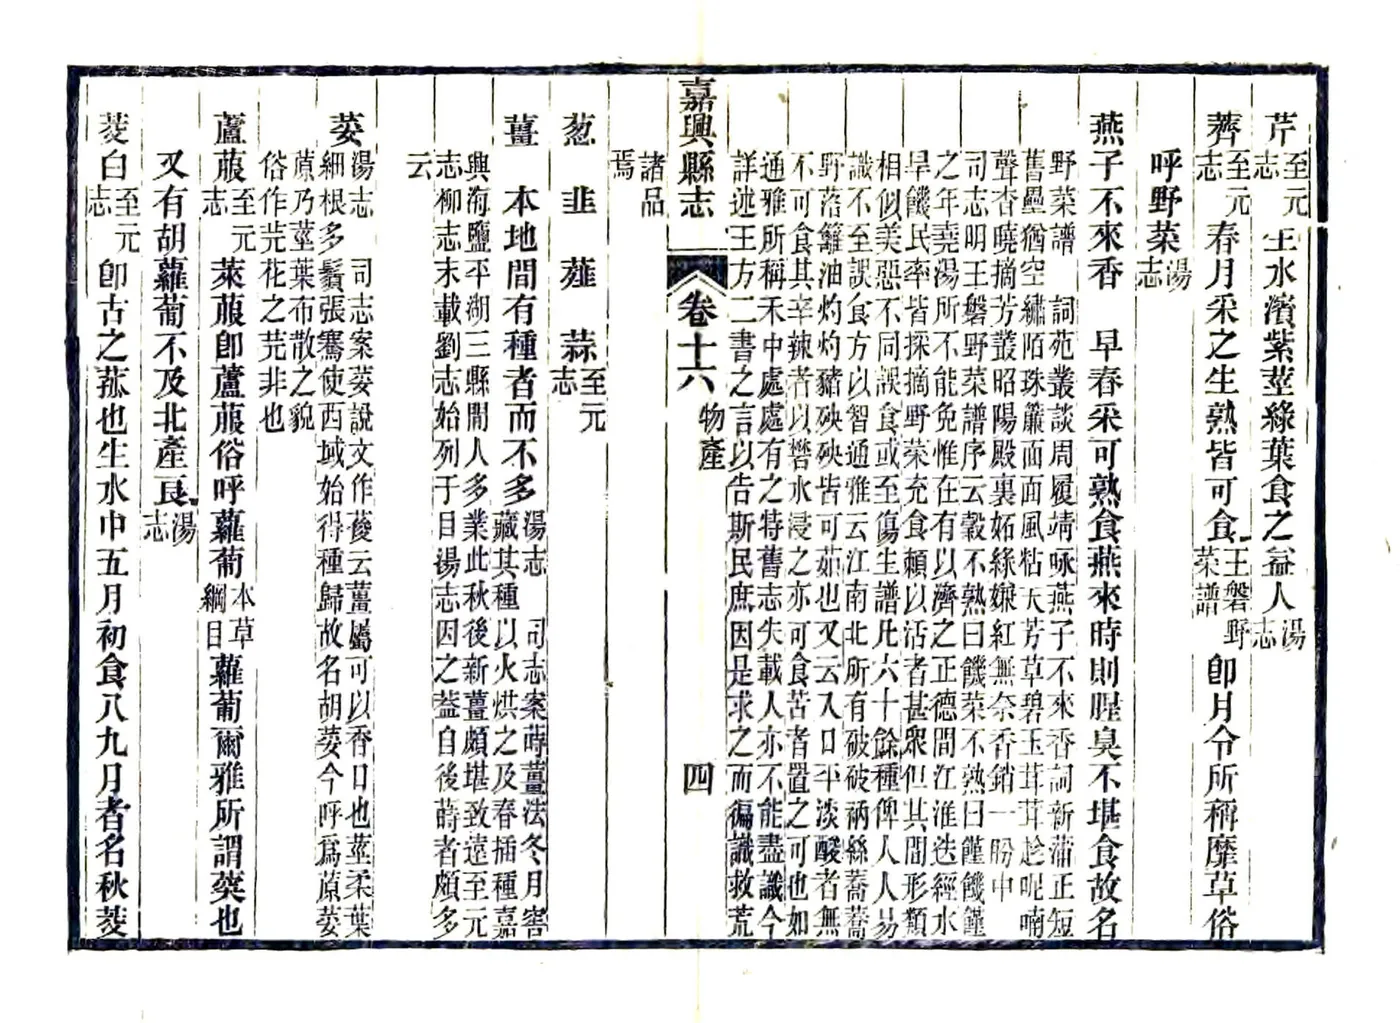 芹至元志生水濱紫莖綠葉食之益人湯志
薺至元志春月采之生熟皆可食王磐野菜譜卽月令所稱靡草俗
呼野菜湯志
燕子不來香 早春采可熟食燕來時則腥臭不堪食故名
野菜譜 詞苑叢談周履靖咏燕子不來香詞新蒲正短
舊壘猶空繡陌珠簾面面風粘天芳草碧玉茸茸趁呢喃
聲杏曉摘芳叢昭陽殿裏妬綠嫌紅無奈香銷一盼中
司志明王磐野菜譜序云穀不熟曰饑菜不熟曰饉饑饉
之年堯湯所不能免惟在有以濟之正德間江淮迭經水
旱饑民率皆採摘野菜充食賴以活者甚衆但其間形類
相似美惡不同誤食或至傷生譜凡六十餘種俾人人易
識不至誤食方以智通雅云江南北所有破破衲絲蕎蕎
野落籬油灼灼豬殃殃皆可茹也又云入口平淡酸者無
不可食其辛辣者以礬水浸之亦可食苦者置之可也如
通雅所稱禾中處處有之特舊志失載人亦不能盡識今
詳述王方二書之言以告斯民庶因是求之而徧識救荒
嘉興縣志 卷十六 物產 四
諸品
焉
葱 韭 薤 蒜至元志
薑 本地間有種者而不多湯志 司志案蒔薑法冬月窖
藏其種以火烘之及春插種嘉
興海鹽平湖三縣間人多業此秋後新薑頗堪致遠至元
志柳志未載劉志始列于目湯志因之葢自後蒔者頗多
云
荽湯志 司志案荽說文作葰云薑屬可以香口也莖柔葉
細根多鬚張騫使西域始得種歸故名胡荽今呼爲蒝荽
蒝乃莖葉布散之貌
俗作芫花之芫非也
蘆菔至元志萊菔卽蘆菔俗呼蘿蔔本草綱目蘿蔔爾雅所謂葖也
又有胡蘿蔔不及北產良湯志
茭白至元志卽古之菰也生水中五月初食八九月者名秋茭